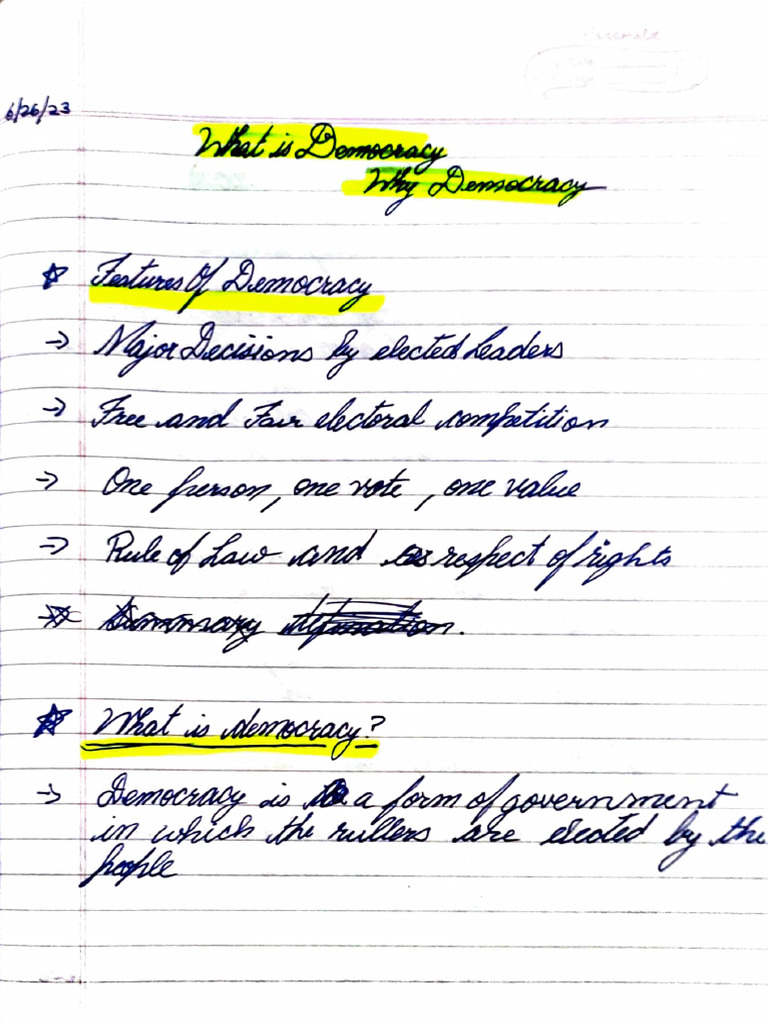 6/26/23
What is Democracy
Why Democracy
☆ Features Of Democracy
→ Major Decisions by elected Leaders
→ Free and Fair electoral competition
→ One person, one vote, one value
→ Rule of Law and respect of rights
Summary
☆ What is democracy?
→ Democracy is a form of government
in which the rullers are elected by the
people